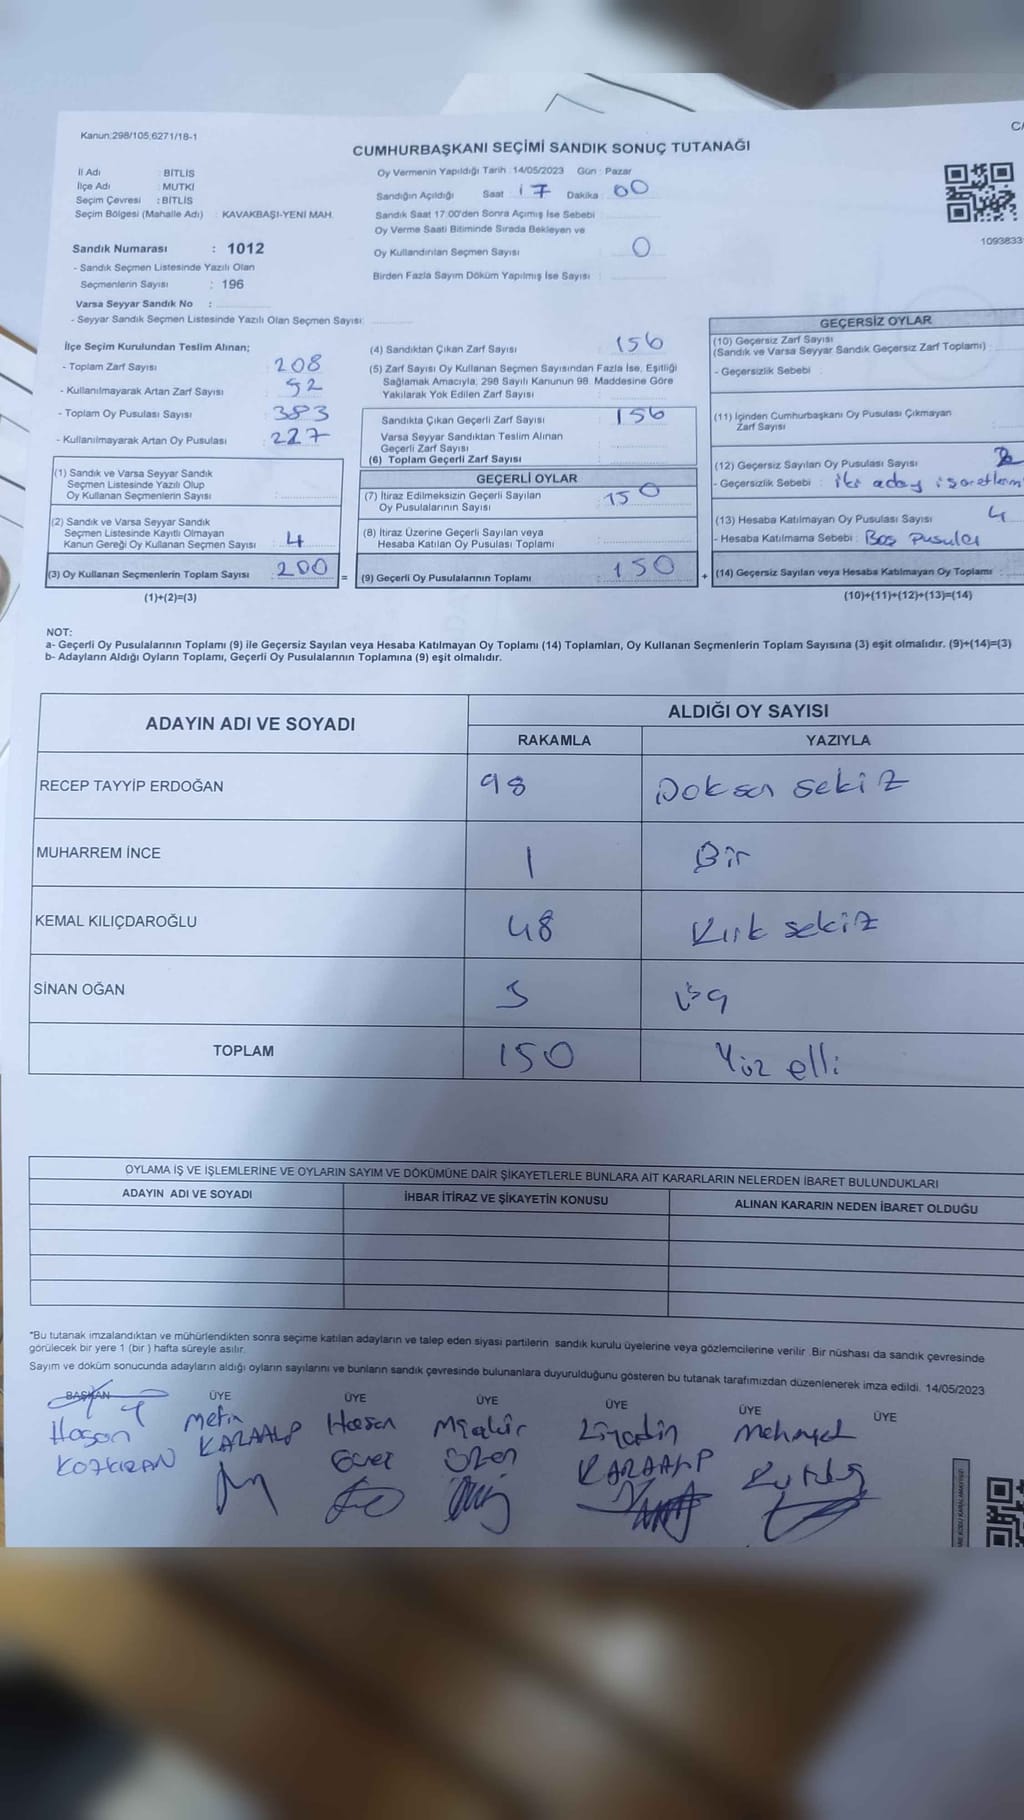 Kanun:298/105,6271/18-1
CUMHURBAŞKANI SEÇİMİ SANDIK SONUÇ TUTANAĞI
İl Adı : BİTLİS
İlçe Adı : MUTKİ
Seçim Çevresi : BİTLİS
Seçim Bölgesi (Mahalle Adı) : KAVAKBAŞI-YENİ MAH.
Oy Vermenin Yapıldığı Tarih : 14/05/2023 Gün : Pazar
Sandığın Açıldığı Saat 17 Dakika : 00
Sandık Saat 17:00'den Sonra Açımış İse Sebebi :
Oy Verme Saati Bitiminde Sırada Bekleyen ve
Oy Kullandırılan Seçmen Sayısı : 0
Birden Fazla Sayım Döküm Yapılmış İse Sayısı :
1093833
Sandık Numarası : 1012
- Sandık Seçmen Listesinde Yazılı Olan
Seçmenlerin Sayısı : 196
Varsa Seyyar Sandık No :
- Seyyar Sandık Seçmen Listesinde Yazılı Olan Seçmen Sayısı:
İlçe Seçim Kurulundan Teslim Alınan;
- Toplam Zarf Sayısı : 208
- Kullanılmayarak Artan Zarf Sayısı : 52
- Toplam Oy Pusulası Sayısı : 383
- Kullanılmayarak Artan Oy Pusulası : 227
(1) Sandık ve Varsa Seyyar Sandık
Seçmen Listesinde Yazılı Olup
Oy Kullanan Seçmenlerin Sayısı :
(2) Sandık ve Varsa Seyyar Sandık
Seçmen Listesinde Kayıtlı Olmayan
Kanun Gereği Oy Kullanan Seçmen Sayısı : 4
(3) Oy Kullanan Seçmenlerin Toplam Sayısı : 200 =
(1)+(2)=(3)
(4) Sandıktan Çıkan Zarf Sayısı : 156
(5) Zarf Sayısı Oy Kullanan Seçmen Sayısından Fazla İse, Eşitliği
Sağlamak Amacıyla; 298 Sayılı Kanunun 98. Maddesine Göre
Yakılarak Yok Edilen Zarf Sayısı :
Sandıkta Çıkan Geçerli Zarf Sayısı : 156
Varsa Seyyar Sandıktan Teslim Alınan
Geçerli Zarf Sayısı :
(6) Toplam Geçerli Zarf Sayısı :
GEÇERLİ OYLAR
(7) İtiraz Edilmeksizin Geçerli Sayılan
Oy Pusulalarının Sayısı : 150
(8) İtiraz Üzerine Geçerli Sayılan veya
Hesaba Katılan Oy Pusulası Toplamı :
(9) Geçerli Oy Pusulalarının Toplamı : 150 +
GEÇERSİZ OYLAR
(10) Geçersiz Zarf Sayısı
(Sandık ve Varsa Seyyar Sandık Geçersiz Zarf Toplamı) :
- Geçersizlik Sebebi :
(11) İçinden Cumhurbaşkanı Oy Pusulası Çıkmayan
Zarf Sayısı
(12) Geçersiz Sayılan Oy Pusulası Sayısı :
- Geçersizlik Sebebi : iki aday işaretlenm
(13) Hesaba Katılmayan Oy Pusulası Sayısı : 4
- Hesaba Katılmama Sebebi : Boş Pusula
(14) Geçersiz Sayılan veya Hesaba Katılmayan Oy Toplamı :
(10)+(11)+(12)+(13)=(14)
NOT:
a- Geçerli Oy Pusulalarının Toplamı (9) ile Geçersiz Sayılan veya Hesaba Katılmayan Oy Toplamı (14) Toplamları, Oy Kullanan Seçmenlerin Toplam Sayısına (3) eşit olmalıdır. (9)+(14)=(3)
b- Adayların Aldığı Oyların Toplamı, Geçerli Oy Pusulalarının Toplamına (9) eşit olmalıdır.
ADAYIN ADI VE SOYADI
ALDIĞI OY SAYISI
RAKAMLA YAZIYLA
RECEP TAYYİP ERDOĞAN 98 Doksan sekiz
MUHARREM İNCE 1 Bir
KEMAL KILIÇDAROĞLU 48 Kırk sekiz
SİNAN OĞAN 3 üç
TOPLAM 150 Yüz elli
OYLAMA İŞ VE İŞLEMLERİNE VE OYLARIN SAYIM VE DÖKÜMÜNE DAİR ŞİKAYETLERLE BUNLARA AİT KARARLARIN NELERDEN İBARET BULUNDUKLARI
ADAYIN ADI VE SOYADI İHBAR İTİRAZ VE ŞİKAYETİN KONUSU ALINAN KARARIN NEDEN İBARET OLDUĞU
*Bu tutanak imzalandıktan ve mühürlendikten sonra seçime katılan adayların ve talep eden siyasi partilerin sandık kurulu üyelerine veya gözlemcilerine verilir .Bir nüshası da sandık çevresinde
görülecek bir yere 1 (bir ) hafta süreyle asılır.
Sayım ve döküm sonucunda adayların aldığı oyların sayılarını ve bunların sandık çevresinde bulunanlara duyurulduğunu gösteren bu tutanak tarafımızdan düzenlenerek imza edildi. 14/05/2023
BAŞKAN ÜYE ÜYE ÜYE ÜYE ÜYE ÜYE
Hasan Metin Hasan Ziyadin Mehmet
KOZKIRAN KARAALP KARAALP